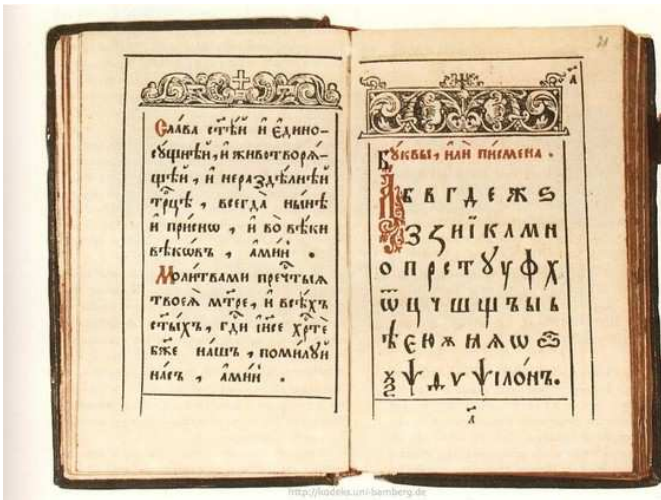 Сла́ва ст҃ѣ́й и҆ є҆дино-
сꙋ́щнѣй, и҆ животворѧ́-
щей, и҆ нераздѣ́лнѣй
трⷪ҇цѣ, всегда̀ ны́нѣ
и҆ при́снѡ, и҆ во вѣ́ки
вѣкѡ́въ, а҆ми́нь.
Моли́твами пречⷭ҇тыѧ
твоеѧ̀ мт҃ре, и҆ всѣ́хъ
ст҃ы́хъ, гдⷭ҇и і҆и҃се хрⷭ҇те
бж҃е на́шъ, поми́лꙋй
на́съ, а҆ми́нь.
21
а҃
Бꙋ́квы, и҆лѝ писмена̀.
А Б В Г Д Е Ж Ѕ
З Ꙁ И Ї К Л М Н
О П Р С Т Ꙋ У Ф Х
Ѿ Ц Ч Ш Щ Ъ Ы Ь
Ѣ Є Ю Ѫ Ѧ Ꙗ Ѡ
Ѯ Ѱ Ѵ Ѱїло́нъ.
а҃
http://kodeks.uni-bamberg.de